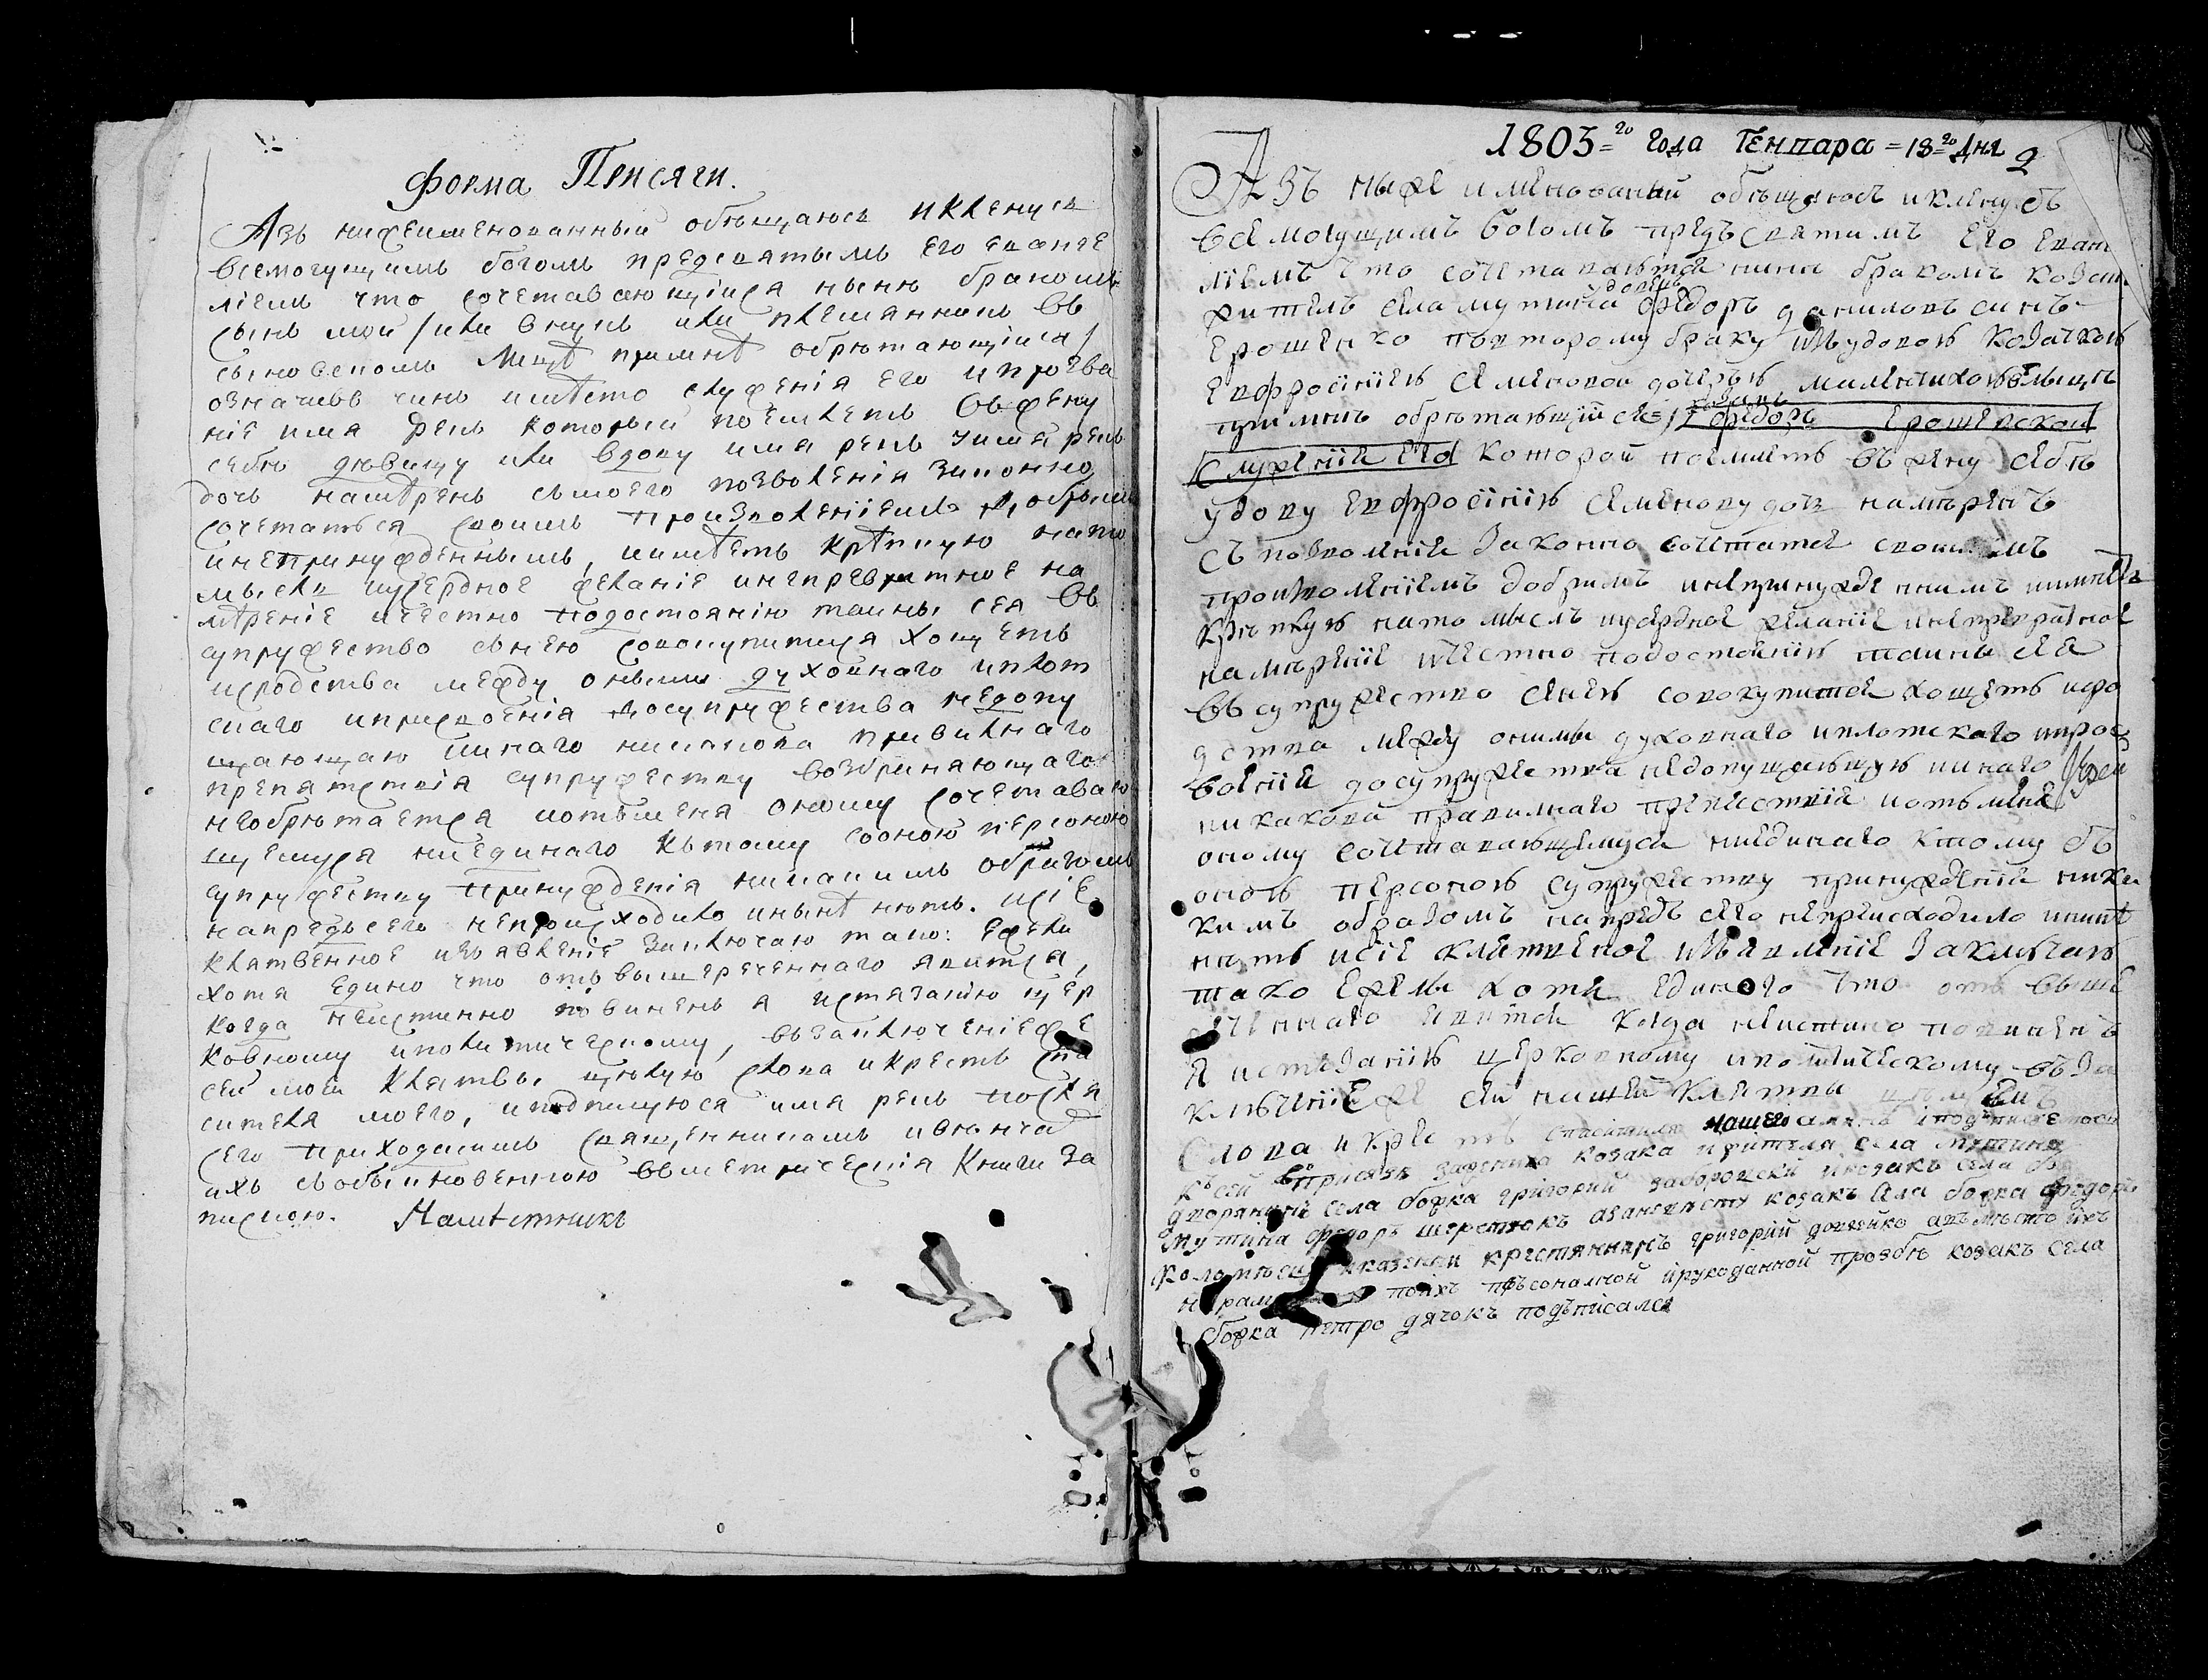 Форма Присяги.
Азъ нижеименованный обѣщаюсь и кленусь
всемогущимъ богомъ предсвятымъ его еванге
лiемъ что сочетавающiися нынѣ бракомъ
сынъ мой / или внукъ или племянникъ въ
сыновскомъ мѣстѣ приметѣ обрѣтающiися /
означивъ чинъ имѣсто служенiя его ипрозва
нiе имя рекъ который поемлетъ въ жену
себѣ дѣвицу или вдову имя рекъ чина рекъ
дочь намѣренъ съ моего позволенiя законно
сочетаться своимъ произволенiемъ добрымъ
инепринужденнымъ, иимѣетъ крѣпкую нато
мысль иусердное желанiе инепревратное на
мѣренiе ичестно подостоянiю тайны сея въ
супружество съ нею совокупитися хощетъ
исродства между оными духовнаго иплот
скаго иприсвоенiя досупружества недопу
щающаго ииного никакова правилнаго
препятствiя супружеству возбраняющаго
необрѣтается иотъ меня оному сочетаваю
щемуся ниединаго кътому сооною персоною
супружеству принужденiя никакимъ образомъ
напредьсего непроисходило инынѣ нѣтъ. исiе
клятвенное изъявленiе заключаю тако: ежели
хотя едино что отъ вышереченнаго явится,
когда неистинно повиненъ я истязанiю цер
ковному иполитическому, въ заключенiе же
сей моей клятвы цѣлую слова икрестъ спа
сителя моего, иподпишуюся имя рекъ послѣ
сего приходскимъ священникамъ ивѣнчать
ихъ съ обыкновенною въ метрическiя книги за
пискою. Намѣстникъ
1803=го Года Генвара =13=го Дня 2
Азъ ниже именований обѣщаюсь икленусъ
всемогущимъ богомъ предъ святимъ его еван
лiемъ что сочетаваются нинѣ бракомъ козакъ
житель села мутина удовецъ федоръ даниловъ синъ
ерошенко повторому браку изъ удовою козачкою
евфросiнiею семеновою дочерью
примѣнъ обрѣтающiй ся= федоръ ерошевской
служенiе его которой поемлетъ въ жену себѣ
удову евфросiнiю семенову дочъ намѣренъ
съ позволенiя законно сочетатся своимъ
произволенiемъ добримъ инепринужденнимъ иимѣетъ
крѣпкую нато мыслъ иусердное желанiе инепревратное
намѣренiе ичестно подостоянiю таини сея
въ супружество снею совокупится хощетъ исро
дства между оними духовнаго иплотскаго иприс
военiя досупружества недопущающую ииного
никакова правилнаго препяствiя иотъ мене
оному сочетавающемуся ниединаго ктому съ
оною персоною супружеству принужденiя ника
кимъ образомъ напредъ сего непроисходило ининѣ
нѣтъ исiе клятвеное изъявленiе заключаю
тако ежели хотя единого что отъ выше
реченнаго явится когда неистинно повиненъ
я истязанiю церковному иполитическому въ за
ключенiе же сей нашей клятви
слова икрестъ спасителя нашего аминь iподпишемося
къ сей присязѣ заженика козака жителя села мутина
дворянинъ села божка григорий забороски iкозакъ села
мутина федоръ шерстюкъ козакъ села божка федоръ
коломѣецъ iказенеи крестянинъ григорий довгенко авъ мѣсто iхъ
неграм поiхъ персоналной iрукоданной прозбѣ козакъ села
божка петро дячокъ подъписался